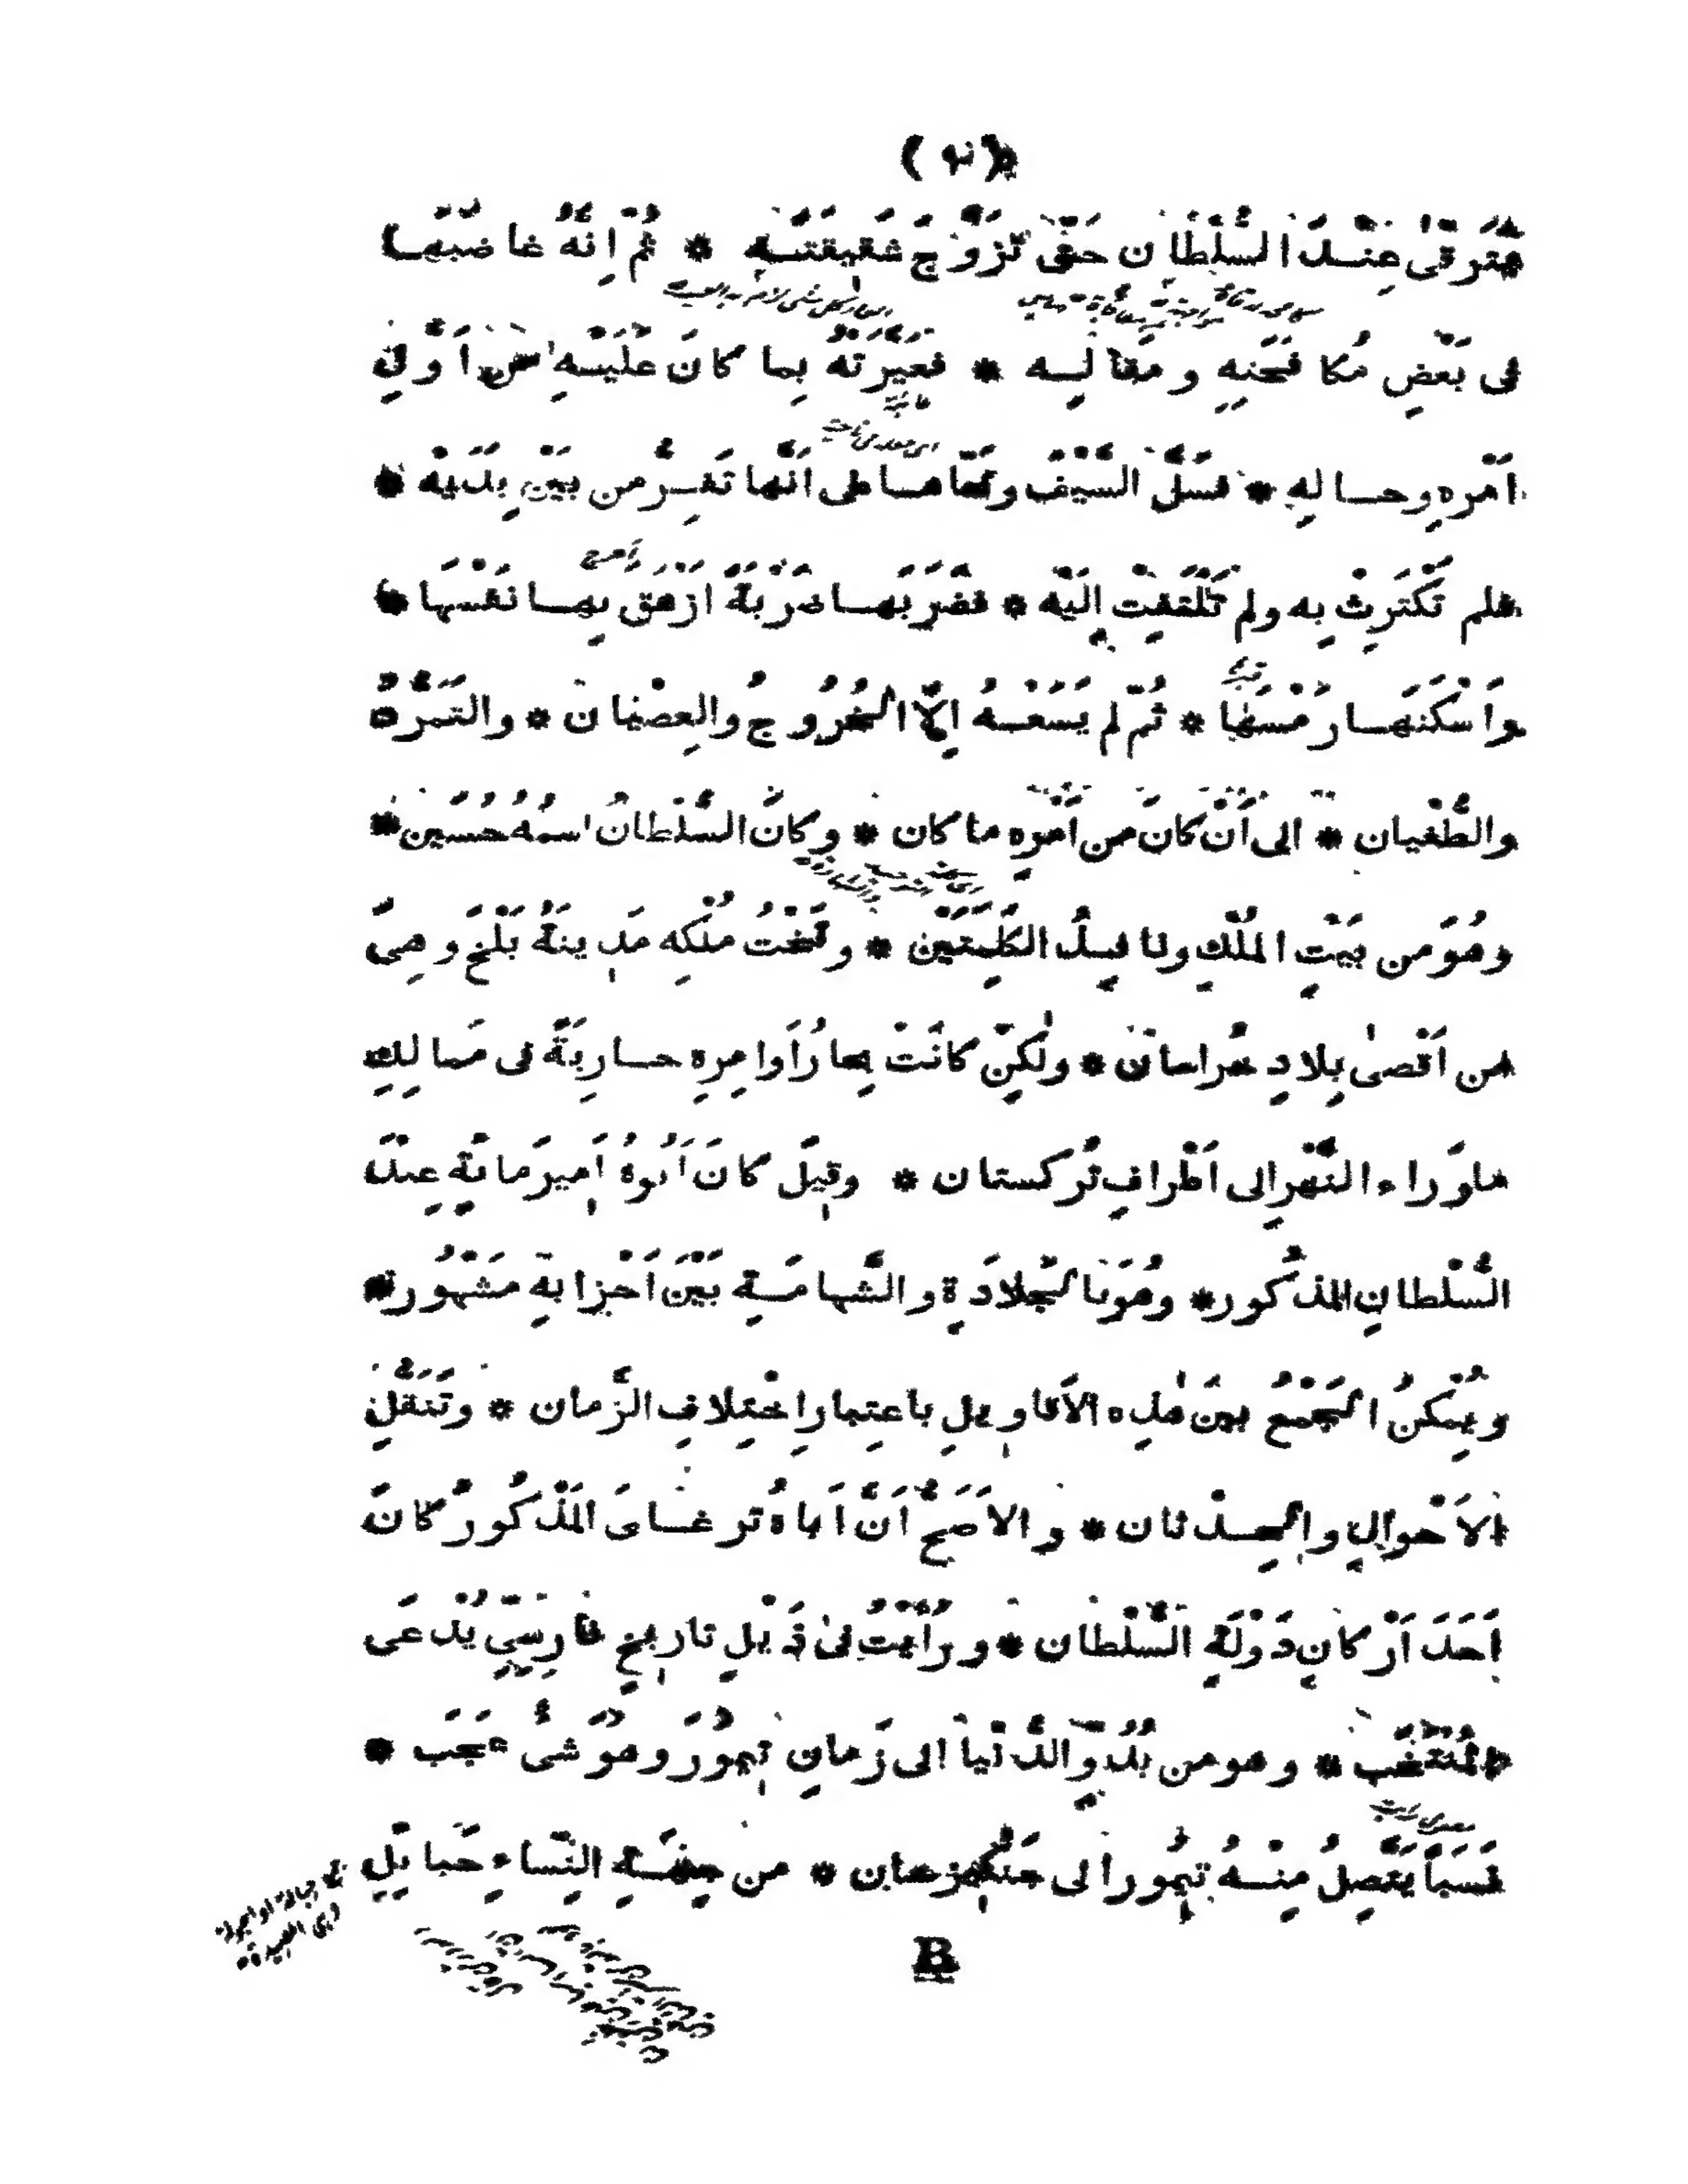 (٩)
فترقى عِنْدَ السُّلْطان حَتّى تَزَوَّجَ شَقيقتَه * ثُمّ اِنّهُ غاضَبَها
فى بَعْضِ مُكافَحَتِهِ ومَقالِه * فعَيَّرَتْهُ بِما كانَ عَلَيْهِ من اَوّلِ
اَمْرِهِ وحالِهِ * فسَلَّ السَّيْفَ ونَحّاها على اَنّها تَفِرُّ من بَيْنِ يَدَيْه *
فلم تَكْتَرِثْ بِه ولم تَلْتَفِتْ اِلَيْه * فضَرَبَها ضَرْبَةً اَزْهَقَ بِها نَفْسَها *
واَسْكَنَها رَمْسَها * ثُمّ لم يَسَعْهُ اِلّا الخُرُوجُ والعِصْيان * والتَمَرُّدُ
والطُّغْيان * الى اَنْ كانَ من اَمْرِهِ ما كان * وكانَ السُّلْطانُ اسمُهُ حُسَين *
وهُوَ من بَيْتِ المُلْكِ ونافِذُ الكَلِمَتَيْن * وتَخْتُ مُلْكِه مَدِينَةُ بَلْخَ وهىَ
من اَقْصى بِلادِ خُراسان * ولٰكِنْ كانَتْ بِحارُ اَوامِرِهِ جارِيَةً فى مَمالِكِ
ماوَراءِ النَّهْرِ الى اَطْرافِ تُركستان * وقِيلَ كانَ اَبُوهُ اَمِيرَ مائةٍ عِنْدَ
السُّلْطانِ المذكُور * وهُوَ بالجَلادَةِ والشَّهامَةِ بَيْنَ اَحْزابِهِ مَشْهُور *
ويُمْكِنُ الجَمْعُ بينَ هٰذِه الاَقاوِيلِ باعتِبارِ اخْتِلافِ الزَّمان * وتَنَقُّلِ
الاَحْوالِ والحِدْثان * والاَصَحُّ اَنَّ اَباهُ ترغاىَ المَذْكُورَ كانَ
اَحَدَ اَرْكانِ دَوْلَةِ السُّلْطان * ورَأَيْتُ فى ذَيْلِ تارِيخٍ فارِسِيٍّ يُدْعَى
المُنْتَخَب * وهو من بُدُوِّ الدُّنْيا الى زَمانِ تِيمُورَ وهُوَ شىْءٌ عَجَب *
نَسَباً يَتَّصِلُ مِنْهُ تِيمُور الى جَنْكِيزخان * من جِهَةِ النِّساءِ حَبايِلِ
B